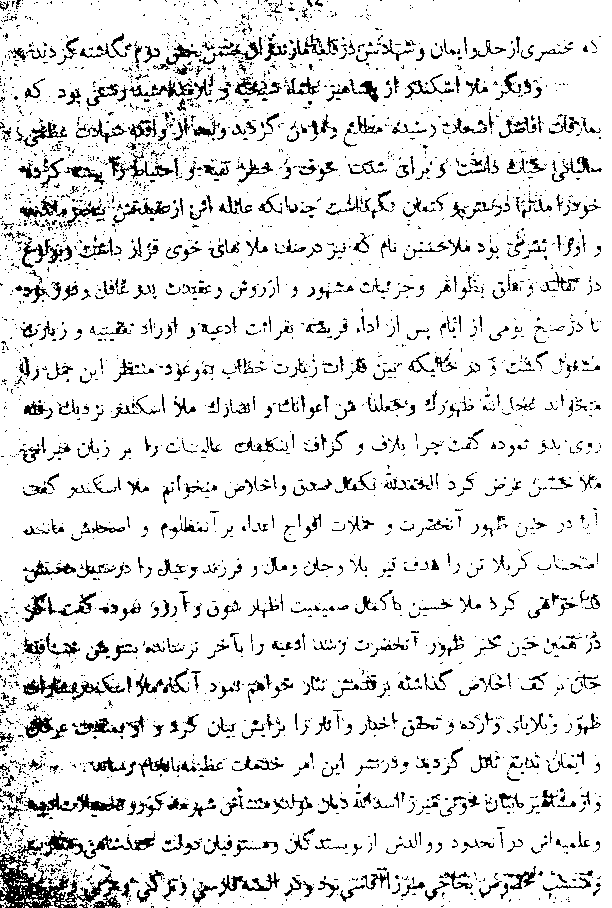 که مختصری از حال و ایمان و شهادتش در قلعه مازندران بخش دوم نگاشته گردید
و دیگر ملا اسکندر از مشاهیر علماء شیخیه و تلامذه سید رشتی بود که
بملاقات افاضل اصحاب رسیده مطلع و مؤمن گردید و بعد از واقعه شهادت عظمی
سالیانی حیات داشت و برای شدت خوف و خطر تقیه و احتیاط را پیشه کرده
خود را مدتها در ستر و کتمان نگهداشت چنانکه عائله اش از عقیدتش بیخبر ماندند
و او را پسری بود ملا حسین نام که نیز در صف ملا های خوی قرار داشت و ببلوغ
در تقالید و تعلق بظواهر و جزئیات مشهور و از روش و عقیدت پدر غافل و دور بود
تا در صبح یومی از ایام پس از اداء فریضه بقرائت ادعیه و اوراد تعقیبیه و زیارت
مشغول گشت و در حالیکه بین فقرات زیارت خطاب بموعود منتظر این جمل را
میخواند عجل الله ظهورک و جعلنا من اعوانک و انصارک ملا اسکندر نزدیک رفته
روی بدو نموده گفت چرا بلاف و گزاف اینکلمات عالیات را بر زبان میرانی
ملا حسین عرض کرد الحمدلله بکمال صدق و اخلاص میخوانم ملا اسکندر گفت
آیا در حین ظهور آنحضرت و حملات افواج اعداء بر آنمظلوم و اصحابش مانند
اصحاب کربلا تن را هدف تیر بلا و جان و مال و فرزند و عیال را در سبیل محبتش
فدا خواهی کرد ملا حسین با کمال صمیمیت اظهار شوق و آرزو نموده گفت اگر
در همین حین خبر ظهور آنحضرت رسد ادعیه را بآخر نرسانده بسویش شتافته
جان بر کف اخلاص گذاشته بر قدمش نثار خواهم نمود آنگاه ملا اسکندر بشارات
ظهور و بلایای وارده و تحقق اخبار و آثار را برایش بیان کرد و او بمنقبت عرفان
و ایمان بدیع نائل گردید و در نشر این امر خدمات عظیمه بانجام رسانید
و از مشاهیر بابیان خوئی میرزا اسدالله دیان مولد و منشأش شهر مذکور و تحصیلات ادبیه
و علمیه اش در آنحدود و والدش از نویسندگان و مستوفیان دولت محمدشاهی و مقرب
و منتسب مخصوص بحاجی میرزا آقاسی بود و در السنه فارسی و ترکی و عربی و